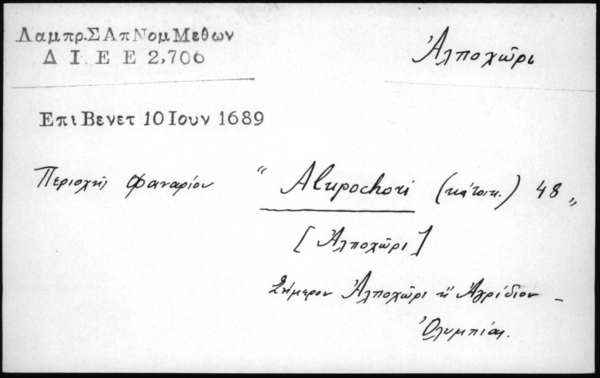 Λαμπρ.ΣΑπ Νομ Μεθων
Δ Ι Ε Ε 2,706
Ἀλποχῶρι
Επι Βενετ 10 Ιουν 1689
Περιοχὴ Φαναρίου “ Alupochori (κάτοικ.) 48 „
[Ἀλποχῶρι]
Σήμερον Ἀλποχῶρι ἢ Ἀγρίδιον –
Ὀλυμπίας.